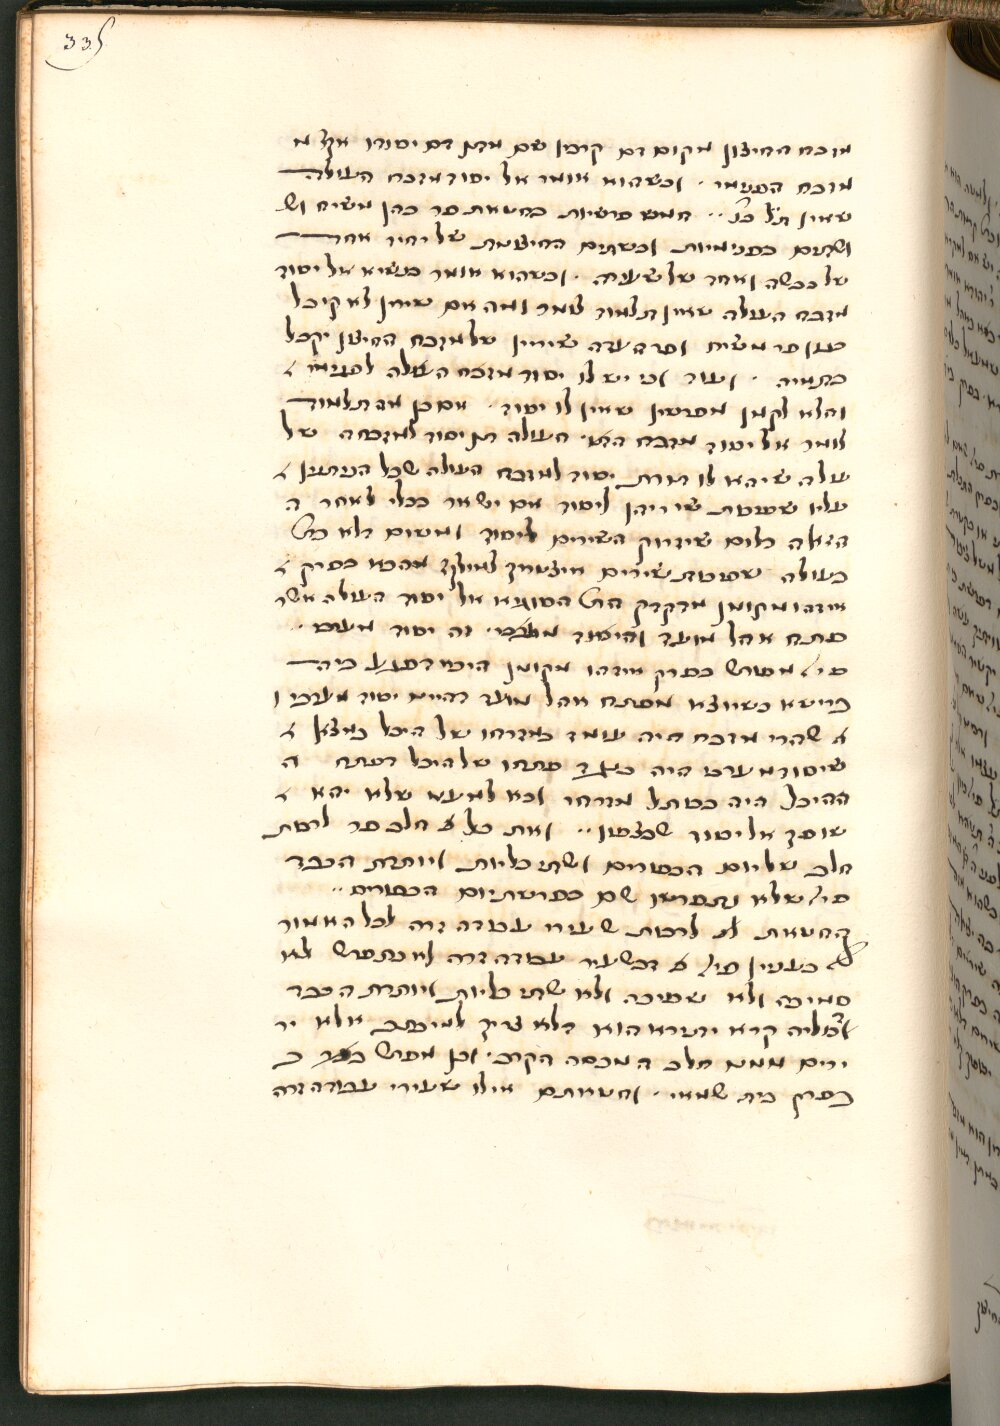 מזבח החיצון מקום דם קרבן שם מתן דם יסודו אצל מ
מזבח הפנימי . וכשהוא אומר אל יסוד מזבח העולה
שאין ת"ל כו' .. חמש פרשיות בחטאת פר כהן משיח וש
ושנים בפנימיות ובשתים החיצונות של יחיד אחד
של כבשה ואחד של שעירה . וכשהוא אומר בנשיא אל יסוד
מזבח העולה שאין תלמוד לומר ומה אם שירין לא קיבל
כגון פר משיח ופר העדה שיריין של מזבח החיצון יקבל
בתמיה . ועוד וכי יש לו יסוד מזבח העולה לפנימי
והלא לקמן מפרשין שאין לו יסוד . אם כן מה תלמוד
לומר אל יסוד מזבח העולה תן יסוד למזבחה של
עולה שיהא לו תורת יסוד למזבח העולה שכל הניתנין
עליו שפיכת שיריהן ליסוד אם ישאר בכלי לאחר ה
הזאה כלום שיזרוק השירים ליסוד ומשום דלא כת'
בעולה שפיכת שירים איצטריך למילף מהכא בפרק
איזהו מקומן מדקדק הת' הסוגיא אל יסוד העולה אשר
פתח אהל מועד והיסוד מערבי . זה יסוד מערבי ..
פי' מפרש בפרק איזהו מקומן היכי דפגע ביה
ברישא כשיוצא מפתח אהל מועד דהיינו יסוד מערבי ו
שהרי מזבח היה עומד במזרחו של היכל נמצא
שיסוד מערבי היה כנגד פתחו של היכל דפתח ה
ההיכל היה בכותל מזרחי ובא למעט שלא יהא
שופך אל יסוד שבצפון .. ואת כל חלב פר לרבות
חלב של יום הכפורים ושתי כליות ויותרת הכבד
פי' שלא נתפרשו שם בפרשת יום הכפורים ..
החטאת לרבות שעירי עבודה זרה לכל האמור
בענין פי' דבשעיר עבודה זרה לא נתפרש לא
סמיכה ולא שפיכה ולא שתי כליות ויותרת הכבד
קרא יתירא הוא דלא צריך למיכתב אלא יר
ירים ממנו חלב המכסה הקרב . וכן מפרש
בפרק בית שמאי . וחטאתם אילו שעירי עבודה זרה